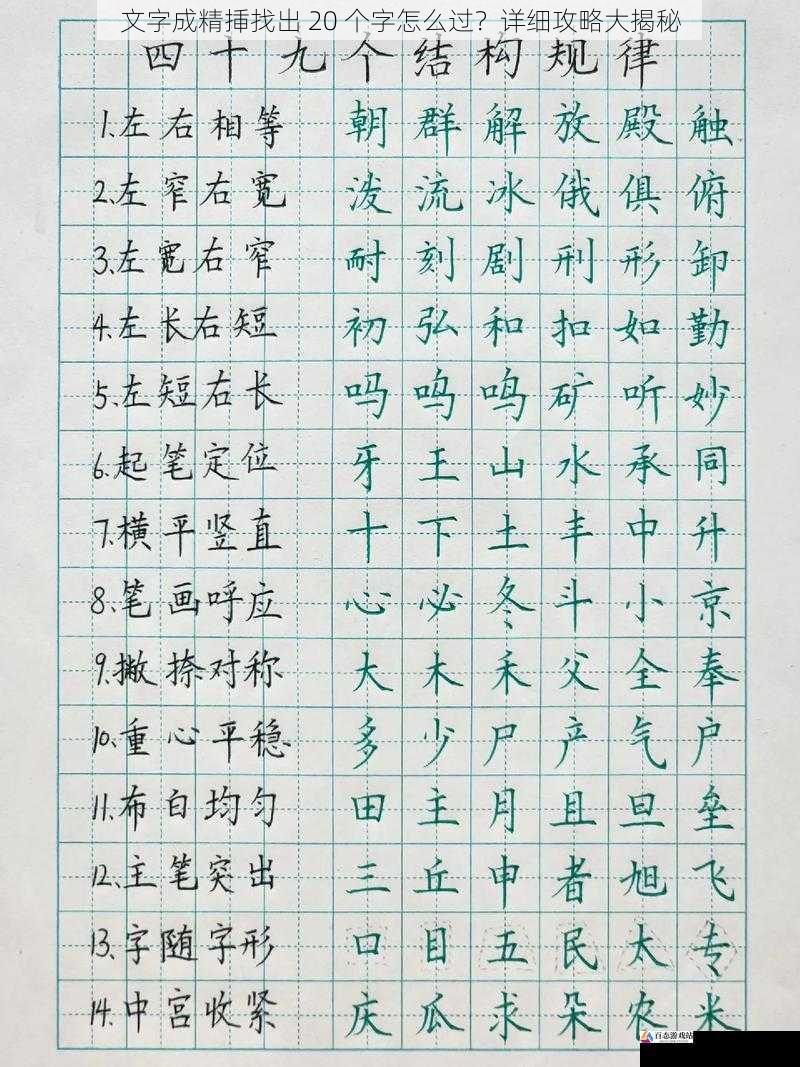 文字成精挿找出 20 个字怎么过？详细攻略大揭秘
四十九个结构规律
1.左右相等 朝群解放殿触
2.左窄右宽 泼流冰俄俱俯
3.左宽右窄 耐刻剧刑形卸
4.左长右短 初弘和扣如勤
5.左短右长 吗鸣鸣矿听妙
6.起笔定位 牙王山水承同
7.横平竖直 十下土丰中升
8.笔画呼应 心必冬斗小京
9.撇捺对称 大木禾父全奉
10.重心平稳 多少尸产气户
11.布白均匀 田主月且旦垒
12.主笔突出 三丘申者旭飞
13.字随字形 口目五民太专
14.中宫收紧 庆瓜求朵农米
百态游戏站